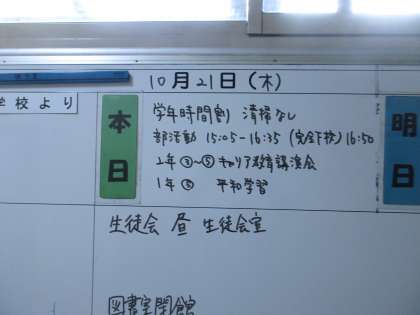 10月21日(木)
学校より
本日
明日
学年時間割 清掃なし
部活動 15:05-16:35 (完全下校) 16:50
2年③~⑤キャリア教育講演会
1年⑤ 平和学習
生徒会 昼 生徒会室
図書室閉館